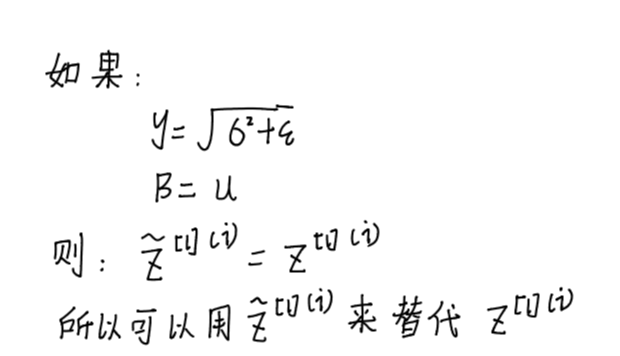 如果：
y = √(6²+ε)
B = u
则： z̃^[l](i) = z^[l](i)
所以可以用 z̃^[l](i) 来替代 z^[l](i)